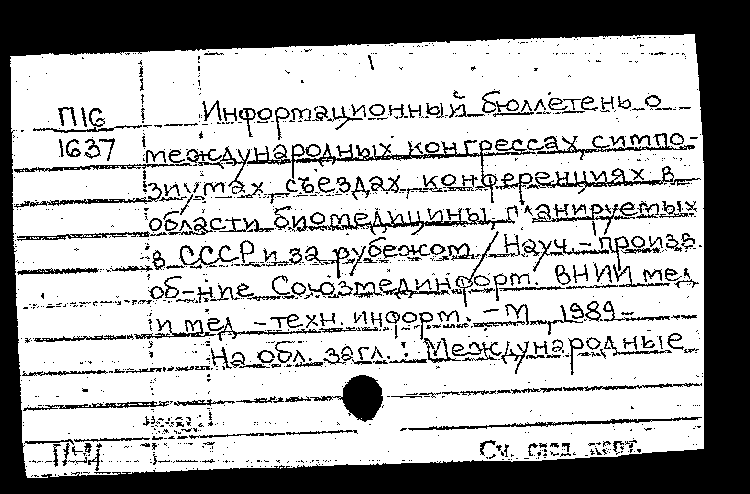 П16
1637
Информационный бюллетень о
международных конгрессах, симпо-
зиумах, съездах, конференциях в
области биомедицины, планируемых
в СССР и за рубежом / Науч.-произв.
об-ние Союзмединформ. ВНИИ мед.
и мед.-техн. информ. - М., 1989-
На обл. загл.: Международные
См. след. карт.